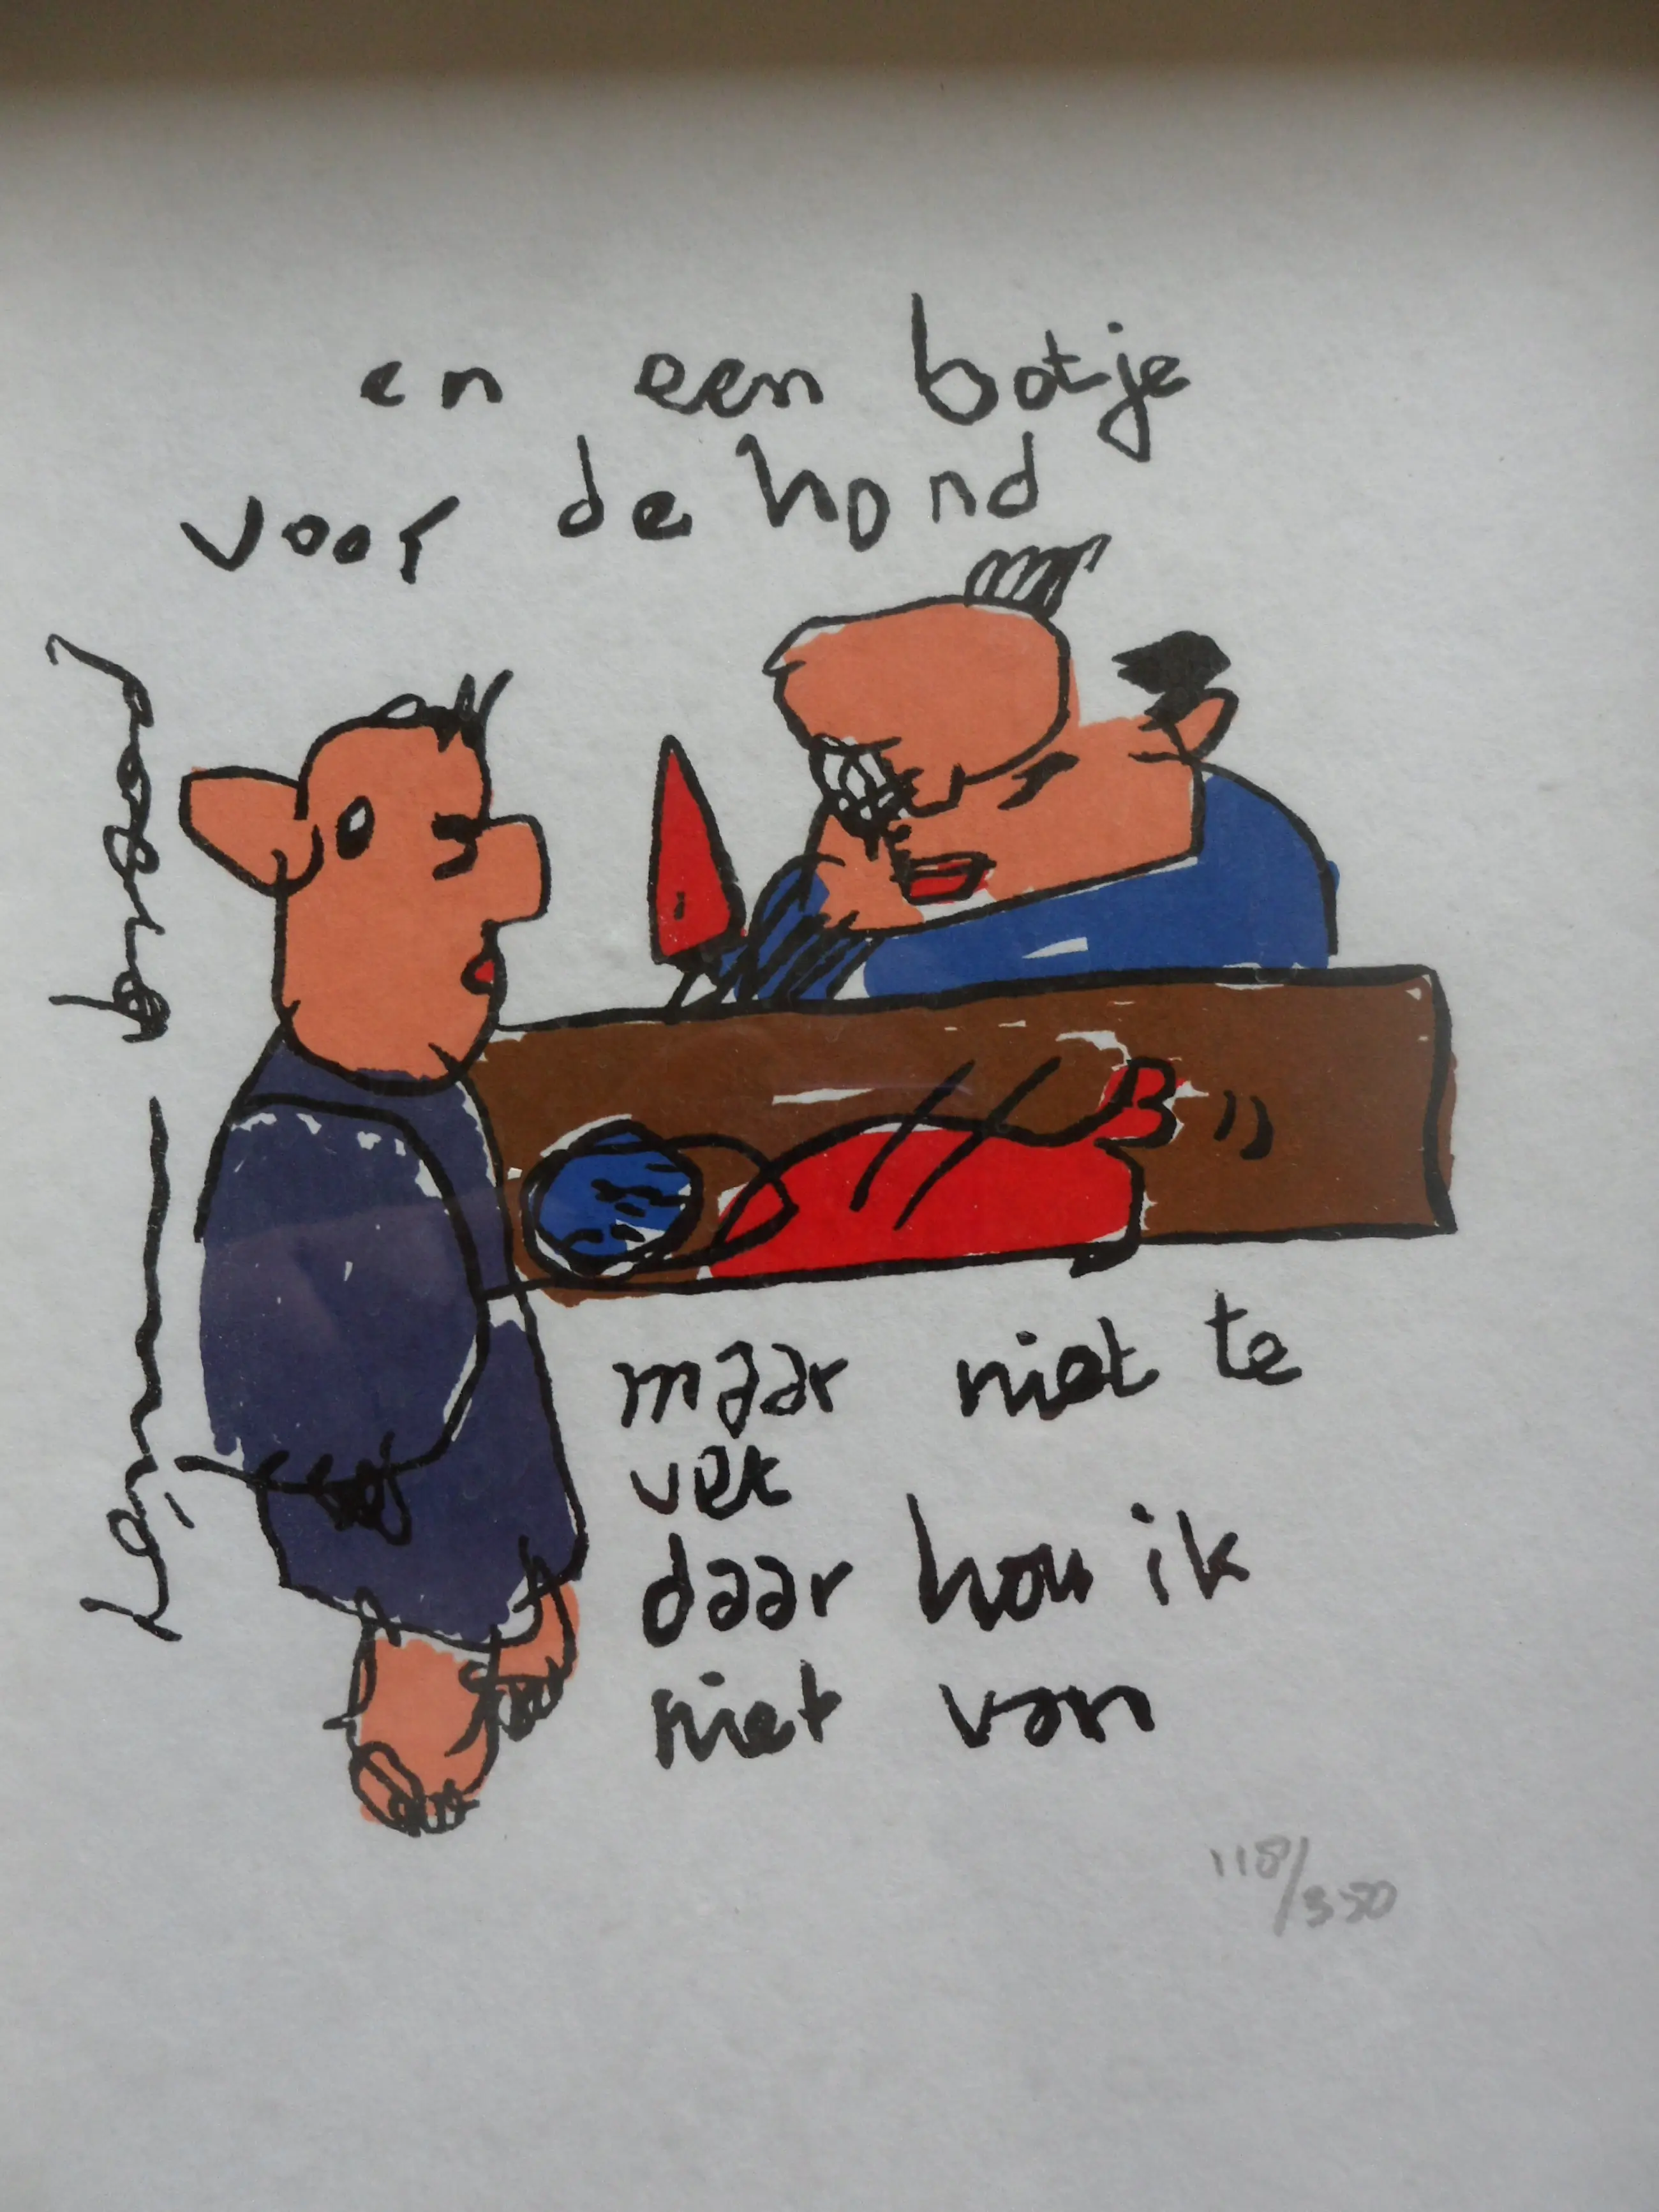 en een botje
voor de hond
maar niet te
vet
daar hou ik
niet van
118/350